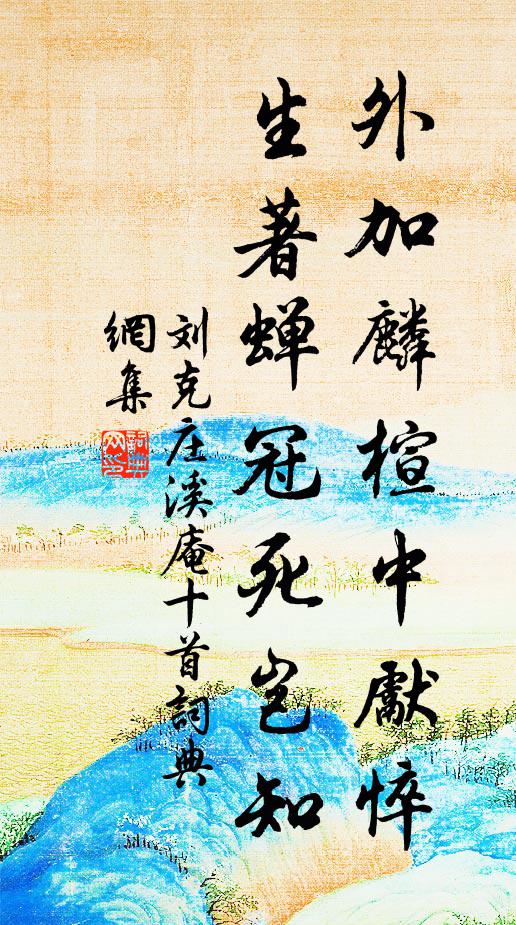 外加麟楦中獻悴
生著蝉冠死岂知
刘克庄溪庵十首詞典
網集